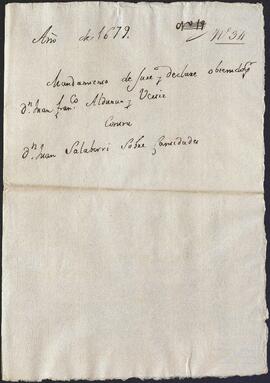 Año de 1679.
Nº 34
Mandamiento de jure y declare obtenido pr
Dn. Juan Franco Aldunan y Vcercontra
Dn. Juan Salaberri Sobre